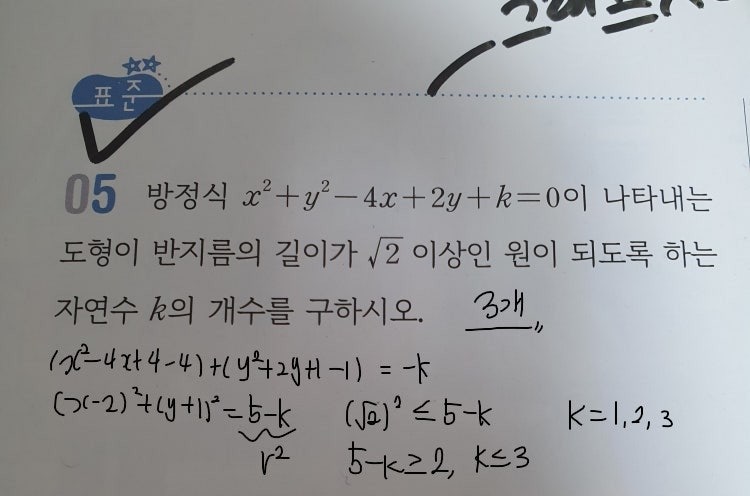 표준
05 방정식 x²+y²-4x+2y+k=0이 나타내는
도형이 반지름의 길이가 √2 이상인 원이 되도록 하는
자연수 k의 개수를 구하시오. 3개
(x²-4x+4-4)+(y²+2y+1-1) = -k
(x-2)²+(y+1)²=5-k (√2)² ≤ 5-k k=1, 2, 3
r² 5-k≥2, k≤3